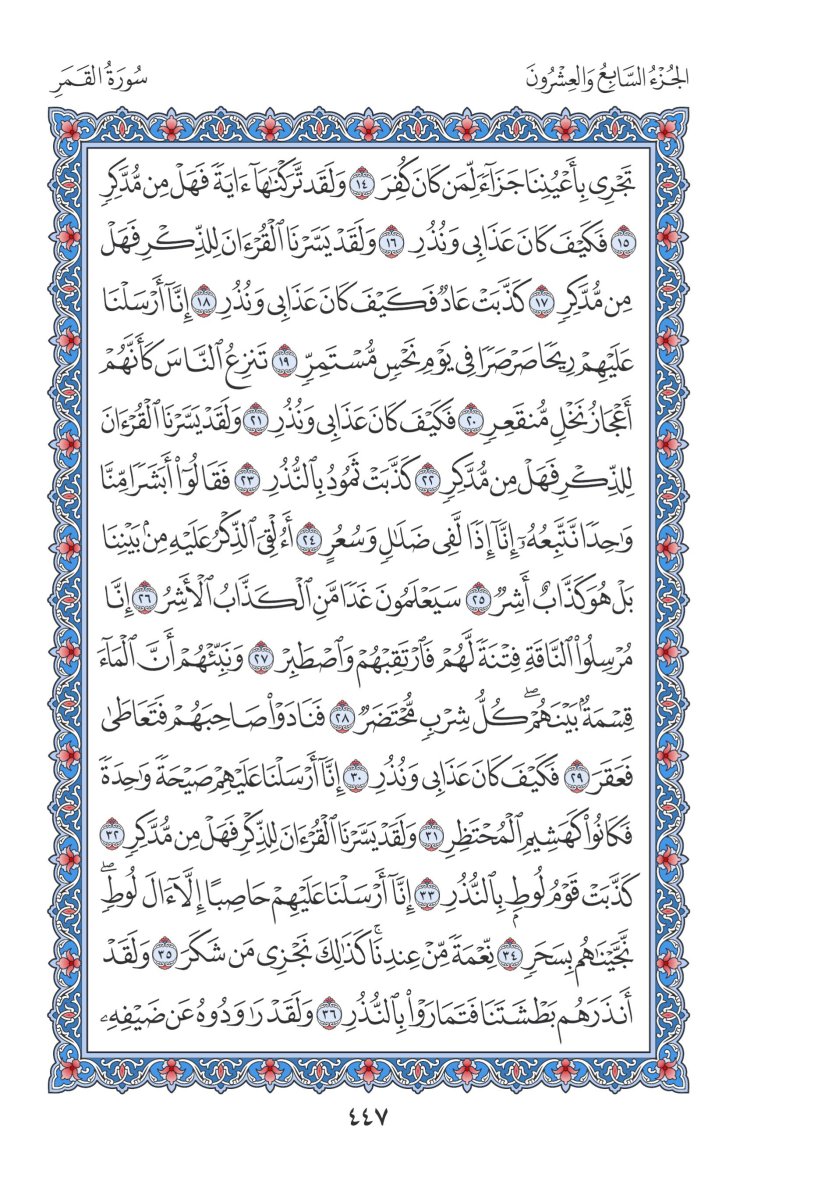 الجُزْءُ السَّابِعُ وَالعِشْرُونَ
سُورَةُ القَمَرِ
تَجْرِي بِأَعْيُنِنَا جَزَآءً لِّمَن كَانَ كُفِرَ ١٤ وَلَقَد تَّرَكْنَٰهَآ ءَايَةً فَهَلْ مِن مُّدَّكِرٍ
١٥ فَكَيْفَ كَانَ عَذَابِي وَنُذُرِ ١٦ وَلَقَدْ يَسَّرْنَا ٱلْقُرْءَانَ لِلذِّكْرِ فَهَلْ
مِن مُّدَّكِرٍ ١٧ كَذَّبَتْ عَادٌ فَكَيْفَ كَانَ عَذَابِي وَنُذُرِ ١٨ إِنَّآ أَرْسَلْنَا
عَلَيْهِمْ رِيحًا صَرْصَرًا فِي يَوْمِ نَحْسٍ مُّسْتَمِرٍّ ١٩ تَنزِعُ ٱلنَّاسَ كَأَنَّهُمْ
أَعْجَازُ نَخْلٍ مُّنقَعِرٍ ٢٠ فَكَيْفَ كَانَ عَذَابِي وَنُذُرِ ٢١ وَلَقَدْ يَسَّرْنَا ٱلْقُرْءَانَ
لِلذِّكْرِ فَهَلْ مِن مُّدَّكِرٍ ٢٢ كَذَّبَتْ ثَمُودُ بِٱلنُّذُرِ ٢٣ فَقَالُوٓا۟ أَبَشَرًا مِّنَّا
وَٰحِدًا نَّتَّبِعُهُۥٓ إِنَّآ إِذًا لَّفِي ضَلَٰلٍ وَسُعُرٍ ٢٤ أَءُلْقِيَ ٱلذِّكْرُ عَلَيْهِ مِنۢ بَيْنِنَا
بَلْ هُوَ كَذَّابٌ أَشِرٌ ٢٥ سَيَعْلَمُونَ غَدًا مَّنِ ٱلْكَذَّابُ ٱلْأَشِرُ ٢٦ إِنَّا
مُرْسِلُوا۟ ٱلنَّاقَةِ فِتْنَةً لَّهُمْ فَٱرْتَقِبْهُمْ وَٱصْطَبِرْ ٢٧ وَنَبِّئْهُمْ أَنَّ ٱلْمَآءَ
قِسْمَةٌۢ بَيْنَهُمْۖ كُلُّ شِرْبٍ مُّحْتَضَرٌ ٢٨ فَنَادَوْا۟ صَاحِبَهُمْ فَتَعَاطَىٰ
فَعَقَرَ ٢٩ فَكَيْفَ كَانَ عَذَابِي وَنُذُرِ ٣٠ إِنَّآ أَرْسَلْنَا عَلَيْهِمْ صَيْحَةً وَٰحِدَةً
فَكَانُوا۟ كَهَشِيمِ ٱلْمُحْتَظِرِ ٣١ وَلَقَدْ يَسَّرْنَا ٱلْقُرْءَانَ لِلذِّكْرِ فَهَلْ مِن مُّدَّكِرٍ ٣٢
كَذَّبَتْ قَوْمُ لُوطٍۭ بِٱلنُّذُرِ ٣٣ إِنَّآ أَرْسَلْنَا عَلَيْهِمْ حَاصِبًا إِلَّآ ءَالَ لُوطٍۖ
نَّجَّيْنَٰهُم بِسَحَرٍ ٣٤ نِّعْمَةً مِّنْ عِندِنَاۚ كَذَٰلِكَ نَجْزِي مَن شَكَرَ ٣٥ وَلَقَدْ
أَنذَرَهُم بَطْشَتَنَا فَتَمَارَوْا۟ بِٱلنُّذُرِ ٣٦ وَلَقَدْ رَٰوَدُوهُ عَن ضَيْفِهِۦ
٤٤٧